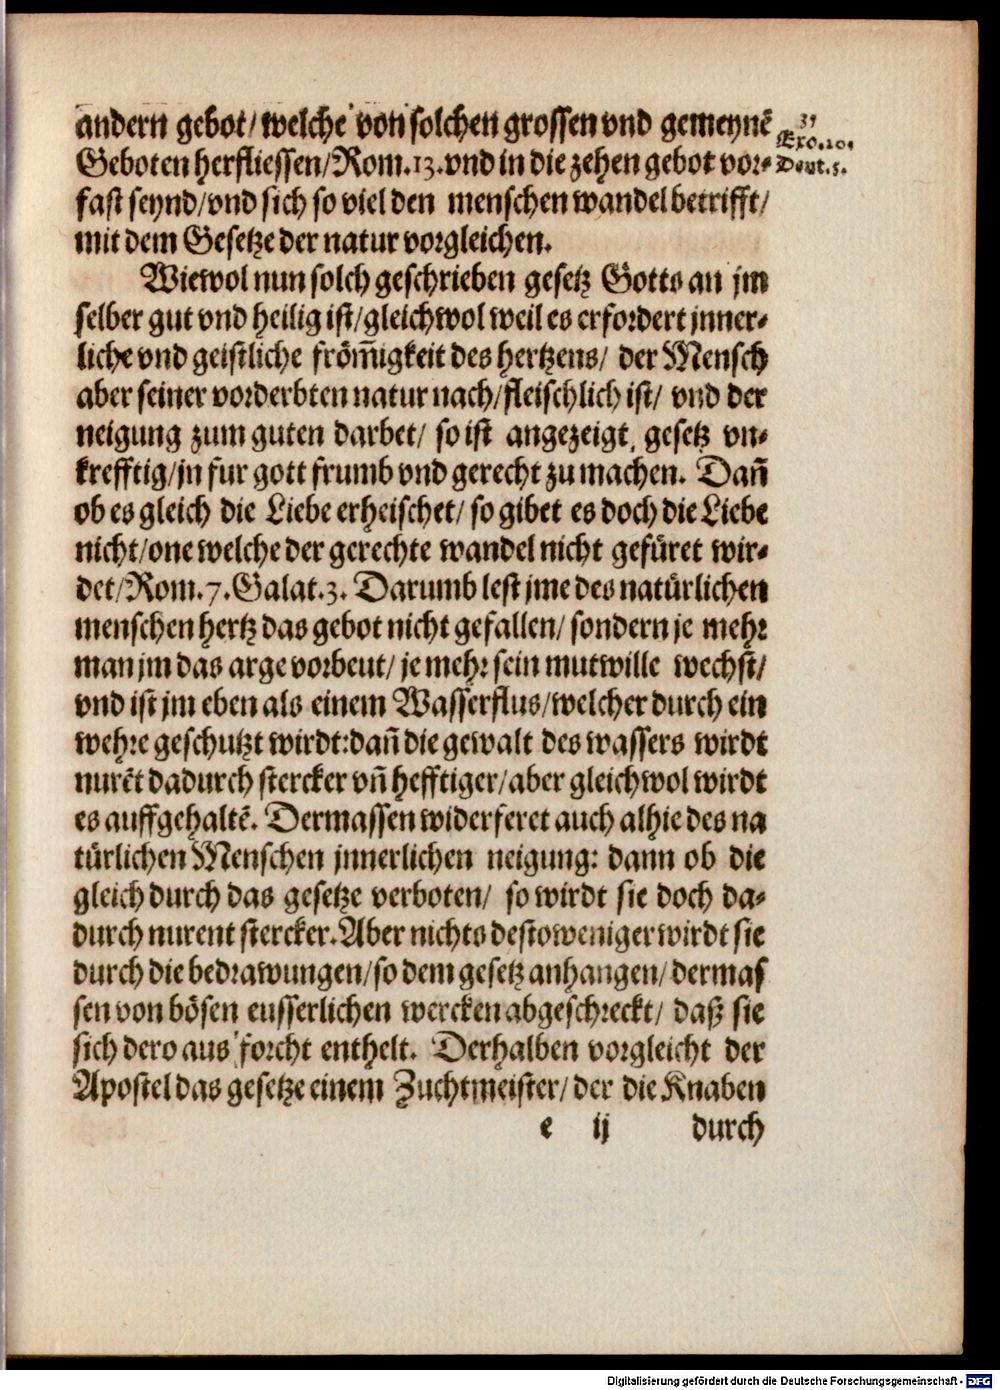 andern gebot/ welche von solchen grossen vnd gemeynē
Geboten herfliessen/ Rom. 13. vnd in die zehen gebot vor-
fast seynd/ vnd sich so viel den menschen wandel betrifft/
mit dem Gesetze der natur vorgleichen.
Exo. 20.
Deut. 5.
Wiewol nun solch geschrieben gesetz Gotts an jm
selber gut vnd heilig ist/ gleichwol weil es erfordert jnner-
liche vnd geistliche fröm̄igkeit des hertzens/ der Mensch
aber seiner vorderbten natur nach/ fleischlich ist/ vnd der
neigung zum guten darbet/ so ist angezeigt gesetz vn-
krefftig/ jn fur gott frumb vnd gerecht zu machen. Dan̄
ob es gleich die Liebe erheischet/ so gibet es doch die Liebe
nicht/ one welche der gerechte wandel nicht gefüret wir-
det/ Rom. 7. Galat. 3. Darumb lest jme des natürlichen
menschen hertz das gebot nicht gefallen/ sondern je mehr
man jm das arge vorbeut/ je mehr sein mutwille wechst/
vnd ist jm eben als einem Wasserflus/ welcher durch ein
wehre geschutzt wirdt: dan̄ die gewalt des wassers wirdt
nurēt dadurch stercker vn̄ hefftiger/ aber gleichwol wirdt
es auffgehaltē. Dermassen widerferet auch alhie des na
türlichen Menschen jnnerlichen neigung: dann ob die
gleich durch das gesetze verboten/ so wirdt sie doch da-
durch nurent stercker. Aber nichts destoweniger wirdt sie
durch die bedrawungen/ so dem gesetz anhangen/ dermas
sen von bösen eusserlichen wercken abgeschreckt/ daß sie
sich dero aus forcht enthelt. Derhalben vorgleicht der
Apostel das gesetze einem Zuchtmeister/ der die Knaben
e ij durch
Digitalisierung gefördert durch die Deutsche Forschungsgemeinschaft - DFG